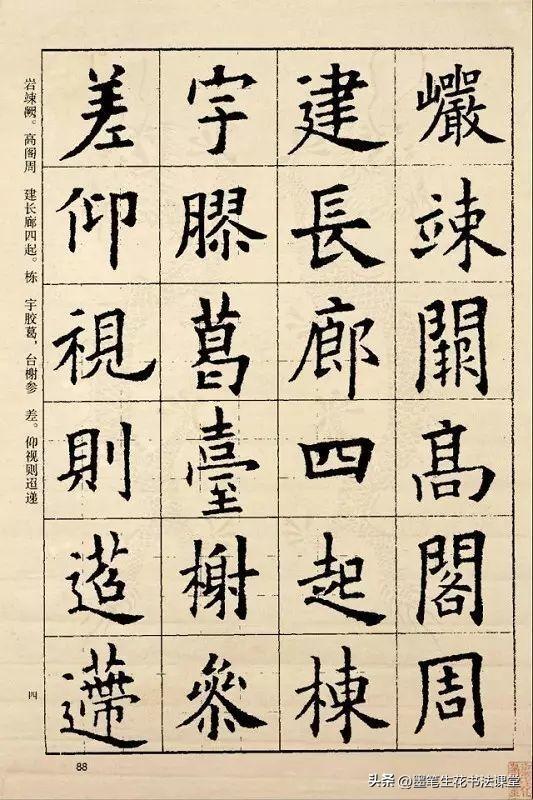 巖竦闕髙閣周
建長廊四起棟
宇膠葛臺榭參
差仰視則迢遰
岩竦阙。高阁周 建长廊四起。栋 宇胶葛，台榭参 差。仰视则迢递
四
88
头条 @墨笔生花书法课堂